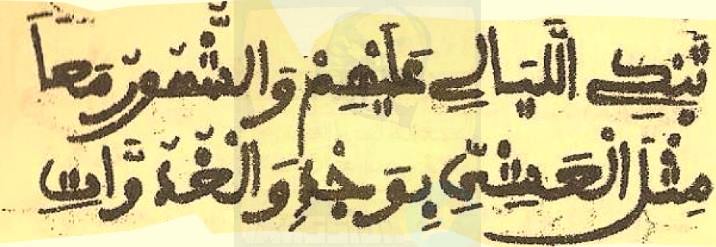 تَبْكِي اللَّيَالِي عَلَيْهِمْ وَالشُّهُورُ مَعاً
مِثْلَ الْعَشِيِّ بِوَجْدٍ وَالْغُدُوَّاتِ